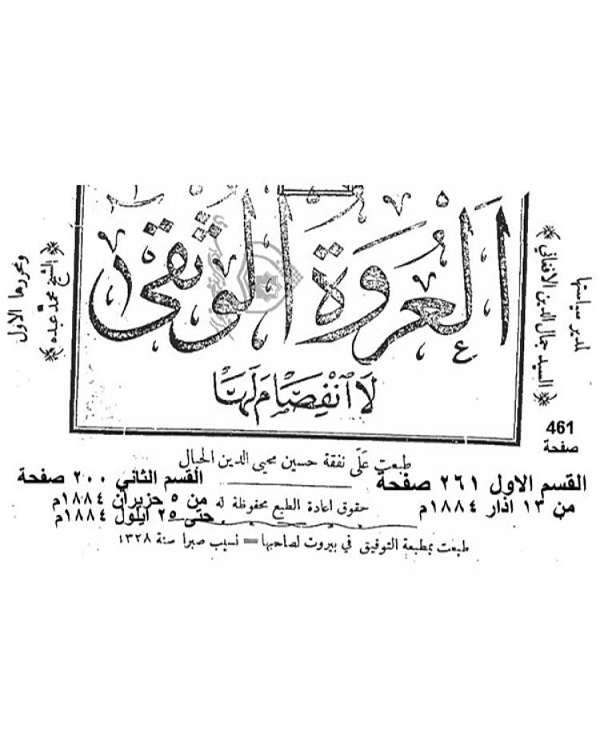 العروة الوثقى
لا انفصام لها
لمدير سياستها
السيد جمال الدين الافغاني
ومحررها الاول
الشيخ محمد عبده
461
صفحة
طبعت على نفقة حسين محيي الدين الحبال
القسم الاول ٢٦١ صفحة
من ١٣ اذار ١٨٨٤م
القسم الثاني ٢٠٠ صفحة
من ٥ حزيران ١٨٨٤م
حتى ٢٥ ايلول ١٨٨٤م
حقوق اعادة الطبع محفوظة له
طبعت بمطبعة التوفيق في بيروت لصاحبها = نسيب صبرا سنة ١٣٢٨